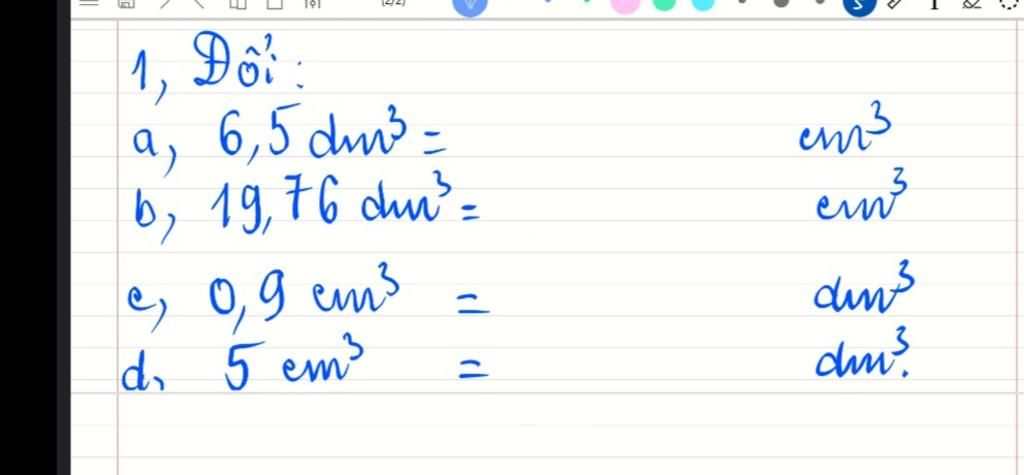 (2/2)
1, Đổi:
a, 6,5 dm³ = cm³
b, 19,76 dm³ = cm³
c, 0,9 cm³ = dm³
d, 5 cm³ = dm³.